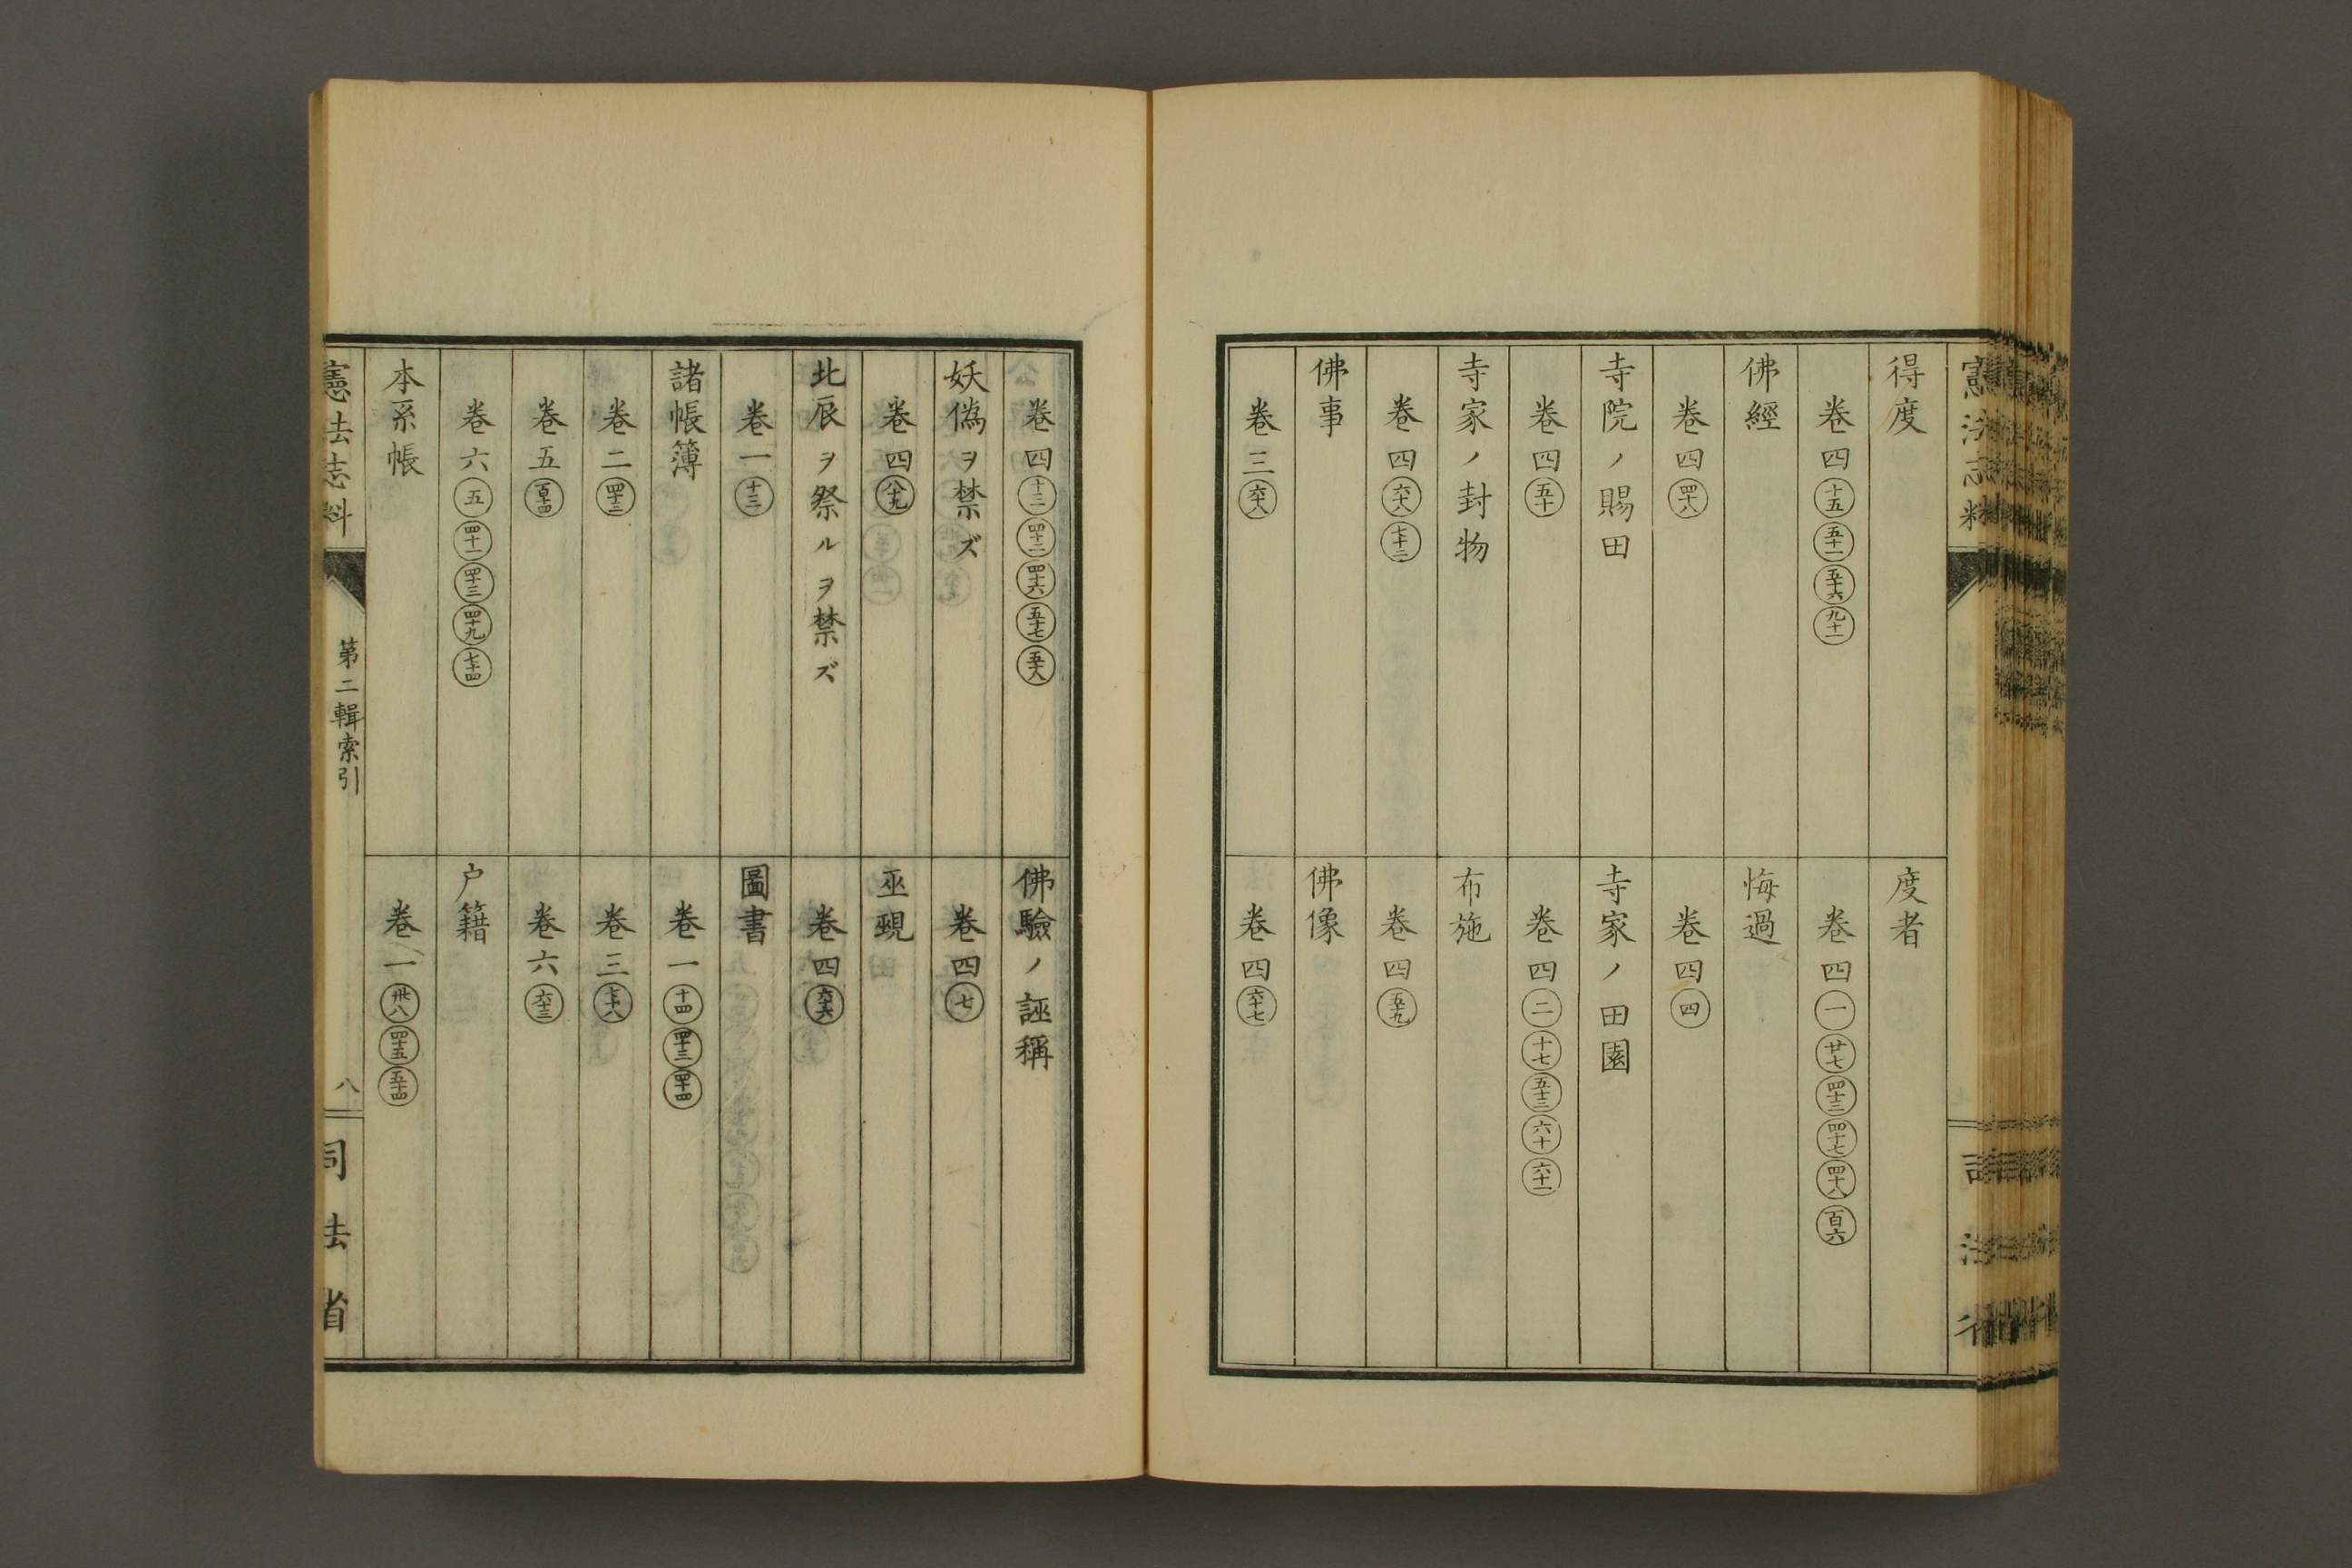 得度
卷四 十五 五十一 五十六 九十一
佛經
卷四 四十八
寺院ノ賜田
卷四 五十
寺家ノ封物
卷四 六十八 七十二
佛事
卷三 六十八
度者
卷四 一 廿七 四十二 四十七 四十八 百六
悔過
卷四 四
寺家ノ田園
卷四 二 十七 五十三 六十 六十一
布施
卷四 五十九
佛像
卷四 六十七
卷四 十二 四十二 四十六 五十七 五十八
妖偽ヲ禁ズ
卷四 八十九
北辰ヲ祭ルヲ禁ズ
卷一 十三
諸帳簿
卷二 四十三
卷五 百十四
卷六 五 四十一 四十三 四十九 七十四
本系帳
佛驗ノ誣稱
卷四 七
巫覡
卷四 六十六
圖書
卷一 十四 四十三 四十四
卷三 七十八
卷六 六十三
户籍
卷一 卅八 四十五 五十四
憲法志料
第二輯索引
八
司法省